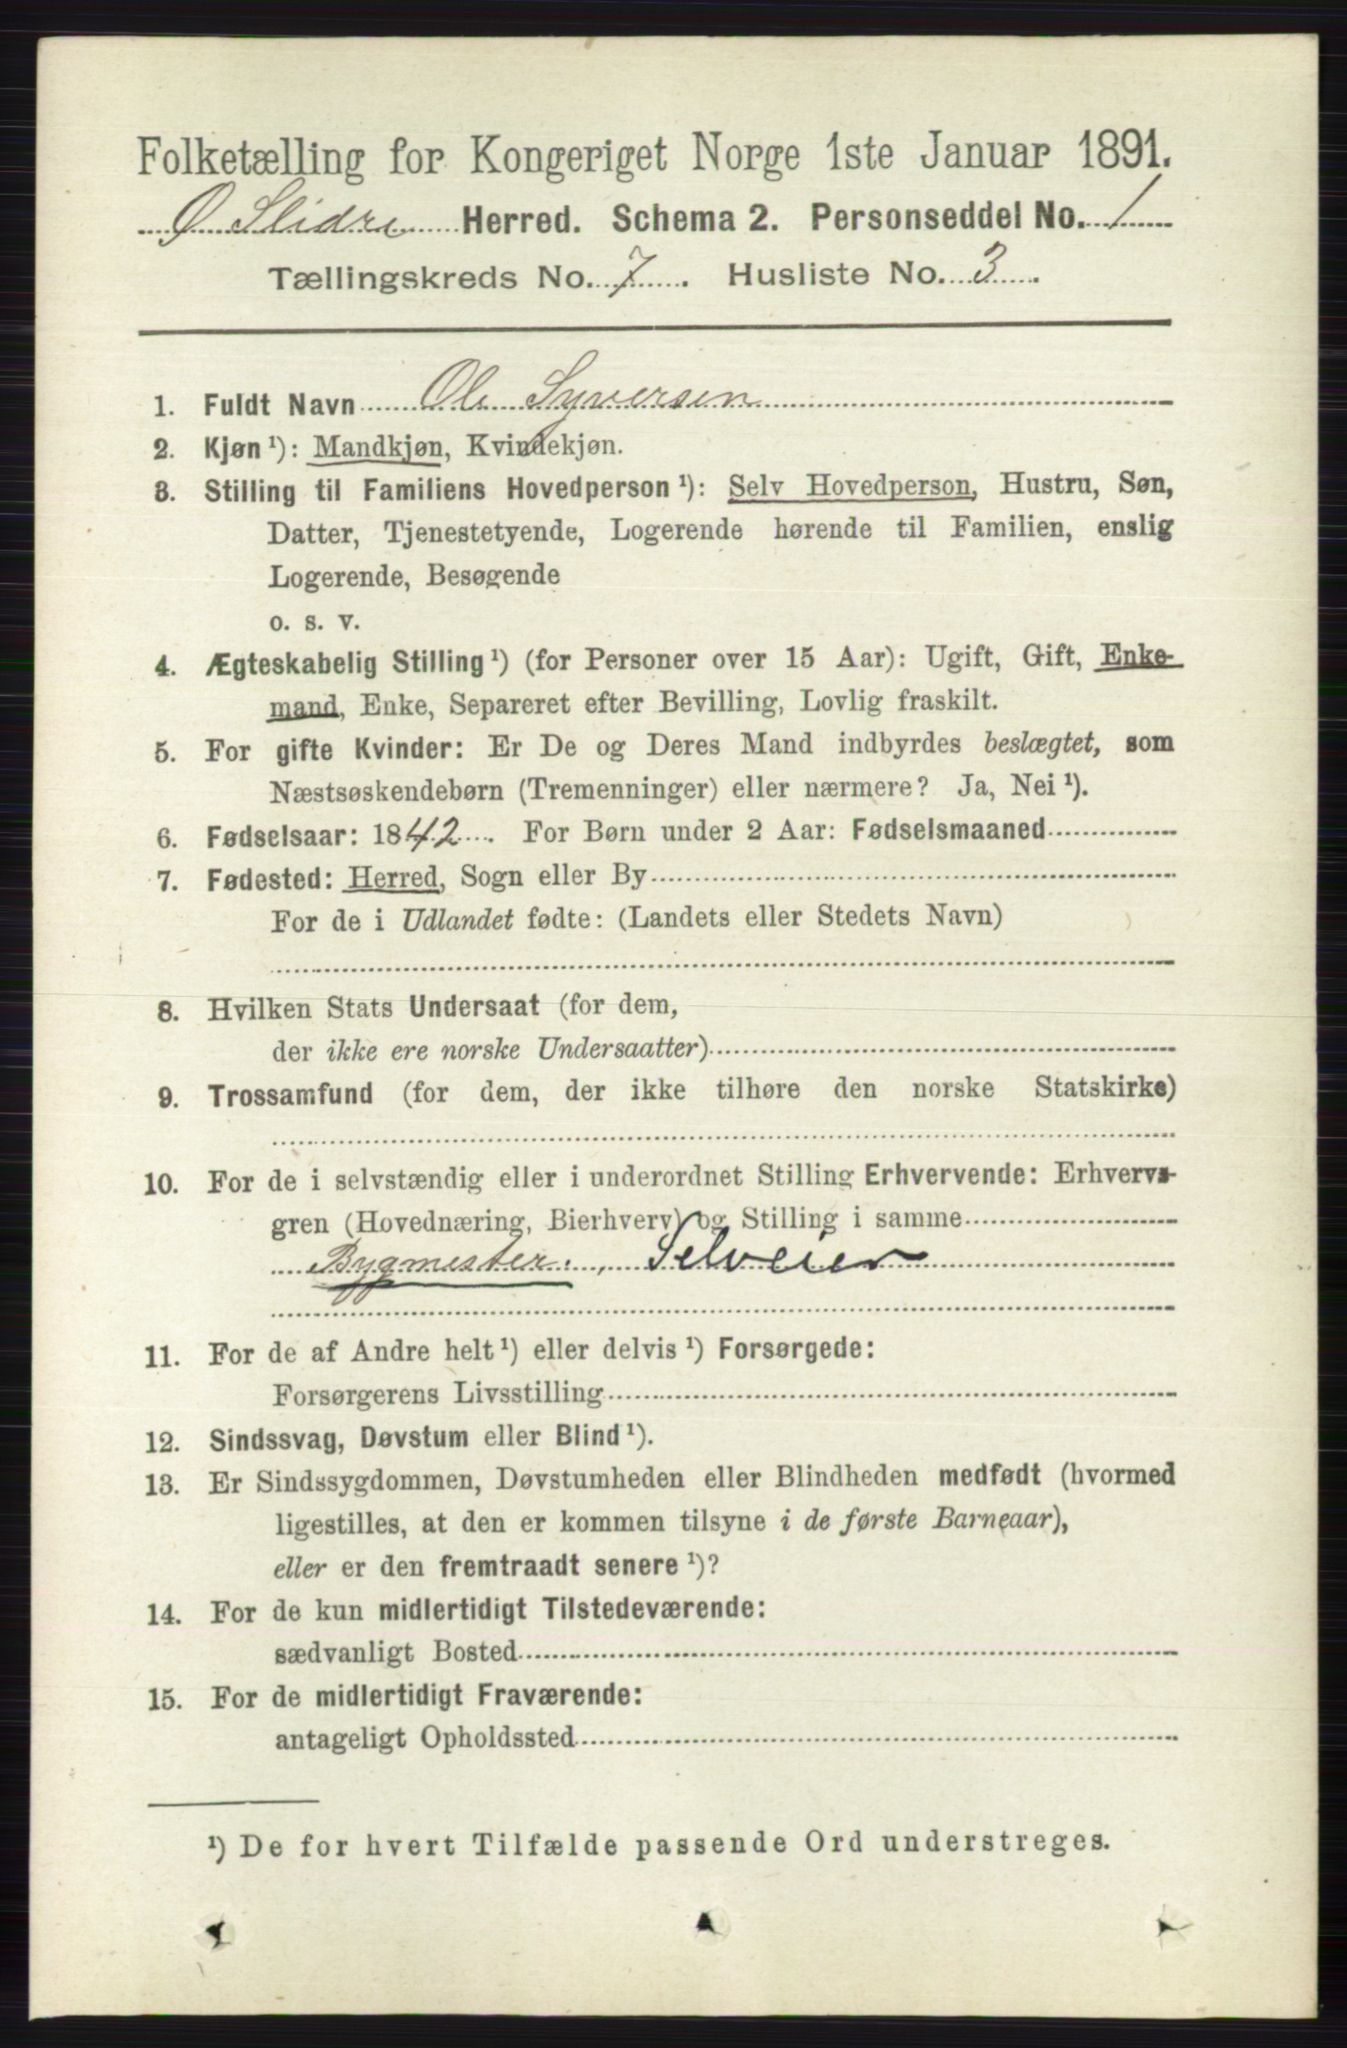 Folketælling for Kongeriget Norge 1ste Januar 1891.
Ø Slidre Herred. Schema 2. Personseddel No. 1
Tællingskreds No. 7. Husliste No. 3.
1. Fuldt Navn Ole Syversen
2. Kjøn¹): Mandkjøn, Kvindekjøn.
3. Stilling til Familiens Hovedperson¹): Selv Hovedperson, Hustru, Søn,
Datter, Tjenestetyende, Logerende hørende til Familien, enslig
Logerende, Besøgende
o. s. v.
4. Ægteskabelig Stilling¹) (for Personer over 15 Aar): Ugift, Gift, Enke-
mand, Enke, Separeret efter Bevilling, Lovlig fraskilt.
5. For gifte Kvinder: Er De og Deres Mand indbyrdes beslægtet, som
Næstsøskendebørn (Tremenninger) eller nærmere? Ja, Nei¹).
6. Fødselsaar: 1842. For Børn under 2 Aar: Fødselsmaaned
7. Fødested: Herred, Sogn eller By
For de i Udlandet fødte: (Landets eller Stedets Navn)
8. Hvilken Stats Undersaat (for dem,
der ikke ere norske Undersaatter)
9. Trossamfund (for dem, der ikke tilhøre den norske Statskirke)
10. For de i selvstændig eller i underordnet Stilling Erhvervende: Erhvervs-
gren (Hovednæring, Bierhverv) og Stilling i samme
Bygmester., Selveier
11. For de af Andre helt¹) eller delvis¹) Forsørgede:
Forsørgerens Livsstilling
12. Sindssvag, Døvstum eller Blind¹).
13. Er Sindssygdommen, Døvstumheden eller Blindheden medfødt (hvormed
ligestilles, at den er kommen tilsyne i de første Barneaar),
eller er den fremtraadt senere¹)?
14. For de kun midlertidigt Tilstedeværende:
sædvanligt Bosted
15. For de midlertidigt Fraværende:
antageligt Opholdssted
¹) De for hvert Tilfælde passende Ord understreges.